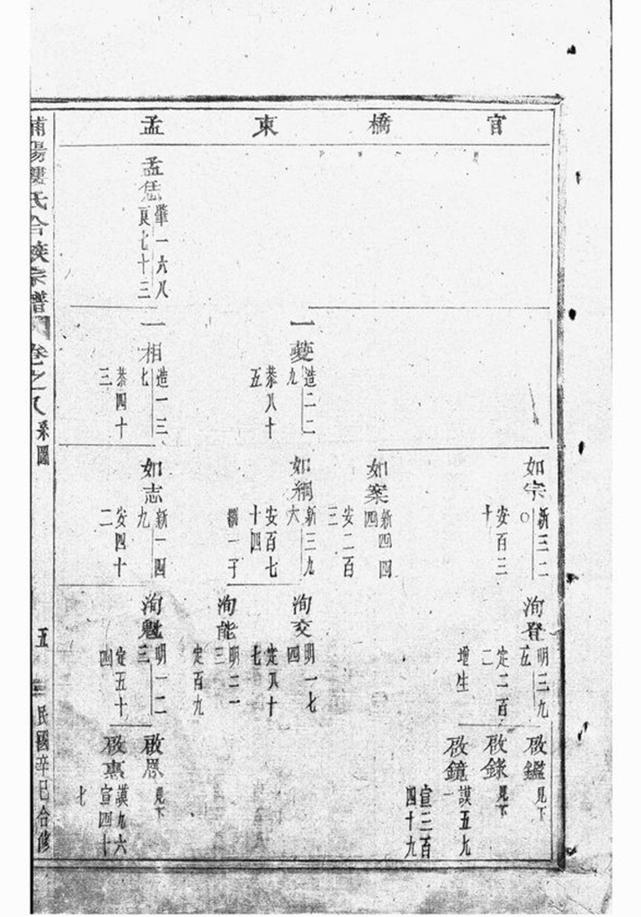 官橋東孟
孟
肇一六八
良七十三
一夔
造二二九
恭八十五
一相
造一三七
恭四十三
如宗
新三二〇
安百三十
如案
新四四四
安二百三
如綱
新三九六
安百七十四
繼一子
如志
新一四九
安四十二
洵眷
明三九五
定二百二
增生
洵交
明一七四
定八十七
洵能
明二一三
定百九
洵魁
明一二三
定五十四
啟鑑 見下
啟錄 見下
啟鏡
謨五九一
宣三百四十九
啟恩 見下
啟憙
謨九六
宣四十七
浦陽 氏合族宗譜 卷之八 系圖 五 民國辛巳合修